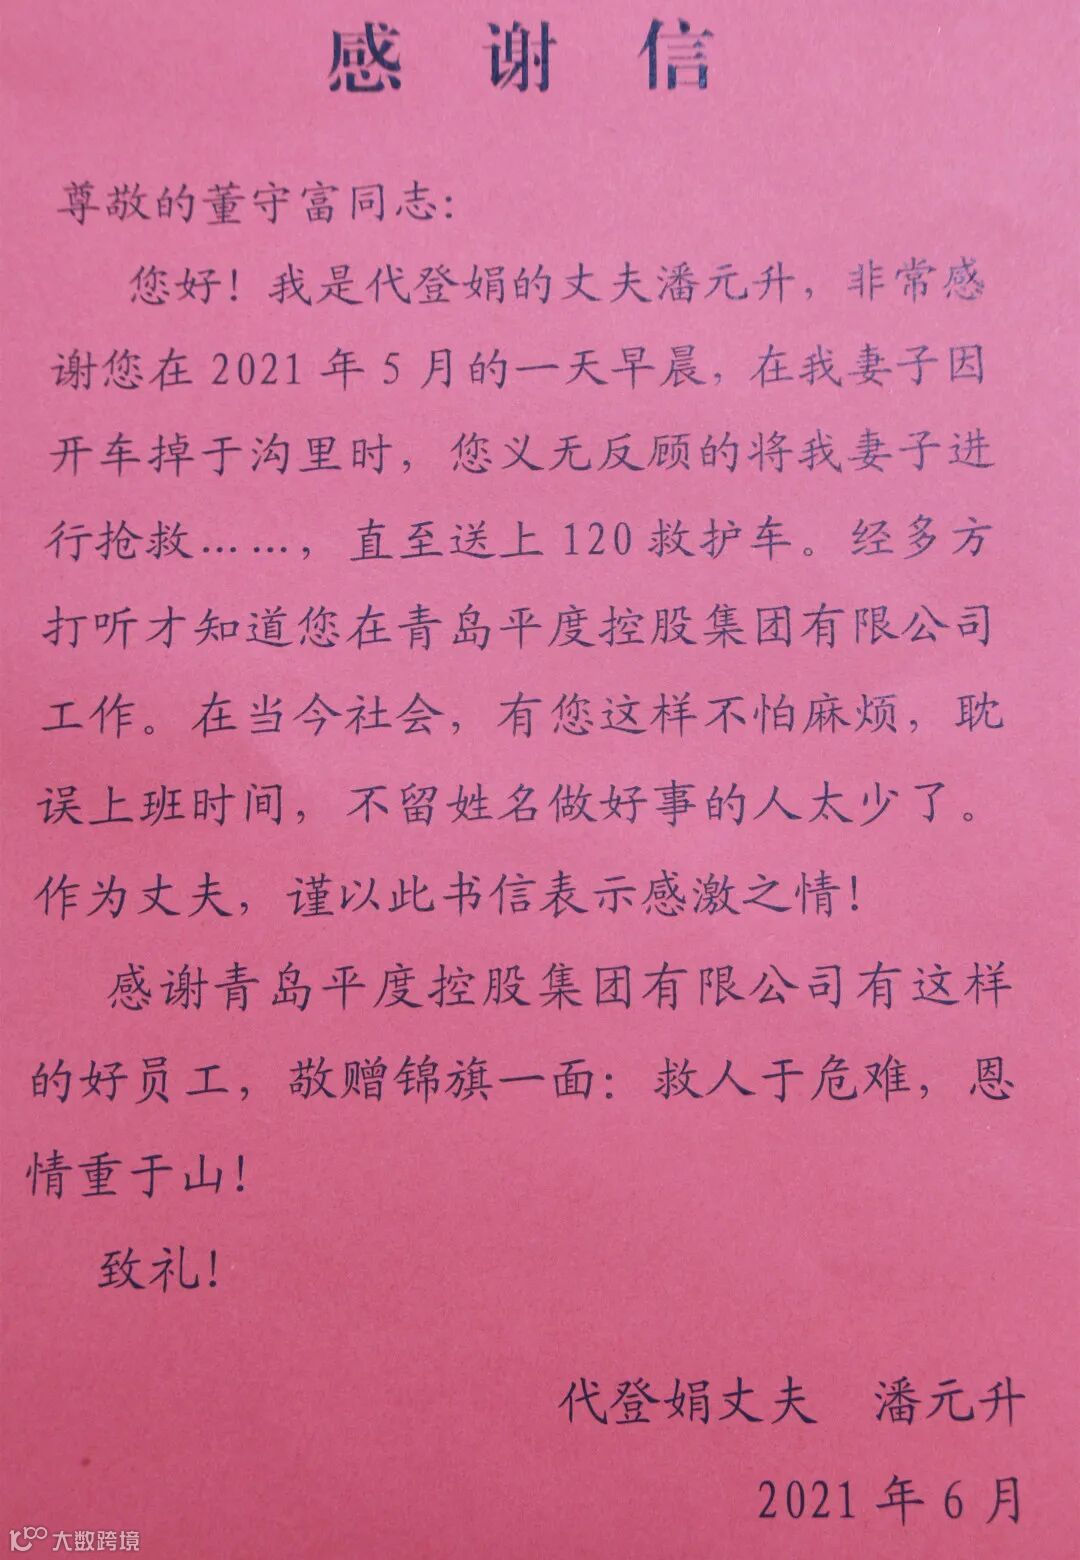 感 谢 信
尊敬的董守富同志：
您好！我是代登娟的丈夫潘元升，非常感
谢您在 2021 年 5 月的一天早晨，在我妻子因
开车掉于沟里时，您义无反顾的将我妻子进
行抢救……，直至送上 120 救护车。经多方
打听才知道您在青岛平度控股集团有限公司
工作。在当今社会，有您这样不怕麻烦，耽
误上班时间，不留姓名做好事的人太少了。
作为丈夫，谨以此书信表示感激之情！
感谢青岛平度控股集团有限公司有这样
的好员工，敬赠锦旗一面：救人于危难，恩
情重于山！
致礼！
代登娟丈夫 潘元升
2021 年 6 月
大数跨境